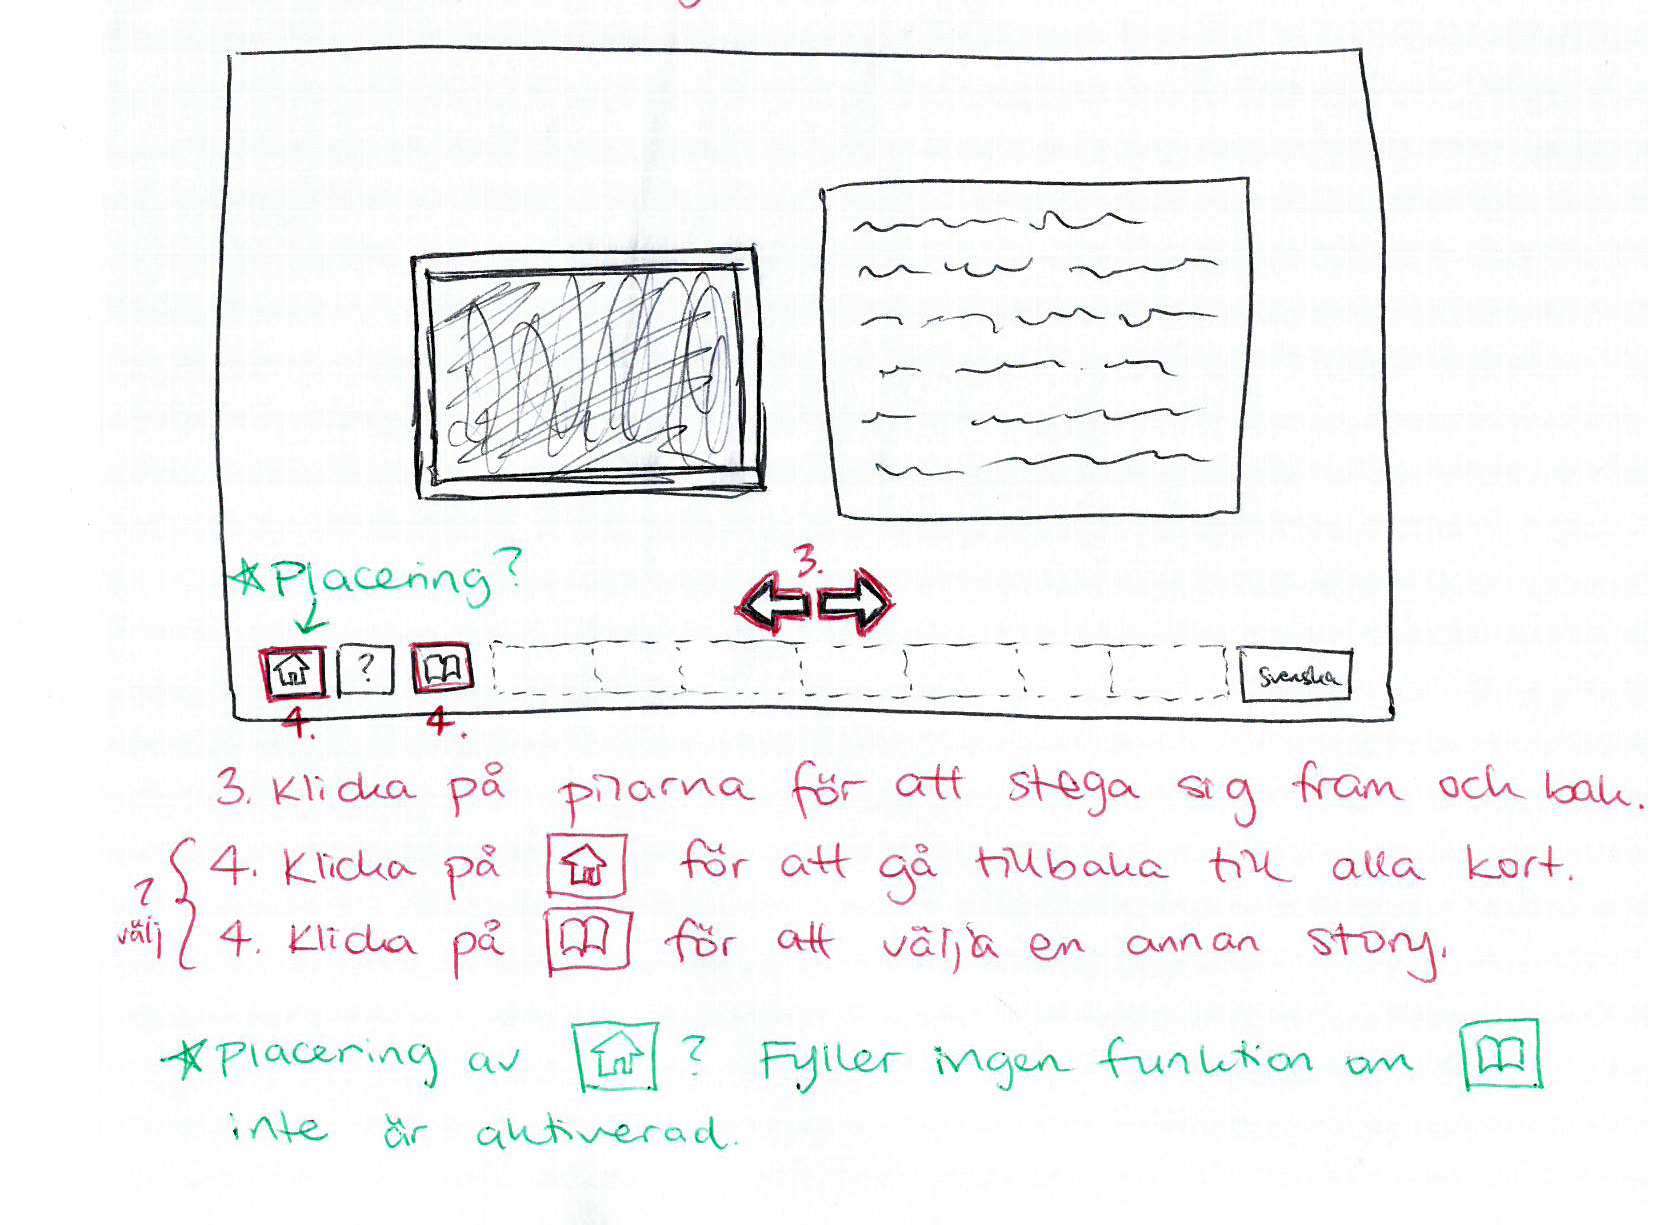 *Placering?
3.
?
Svenska
4. 4.
3. Klicka på pilarna för att stega sig fram och bak.
4. Klicka på för att gå tillbaka till alla kort.
? välj
4. Klicka på för att välja en annan story.
*Placering av ? Fyller ingen funktion om
inte är aktiverad.